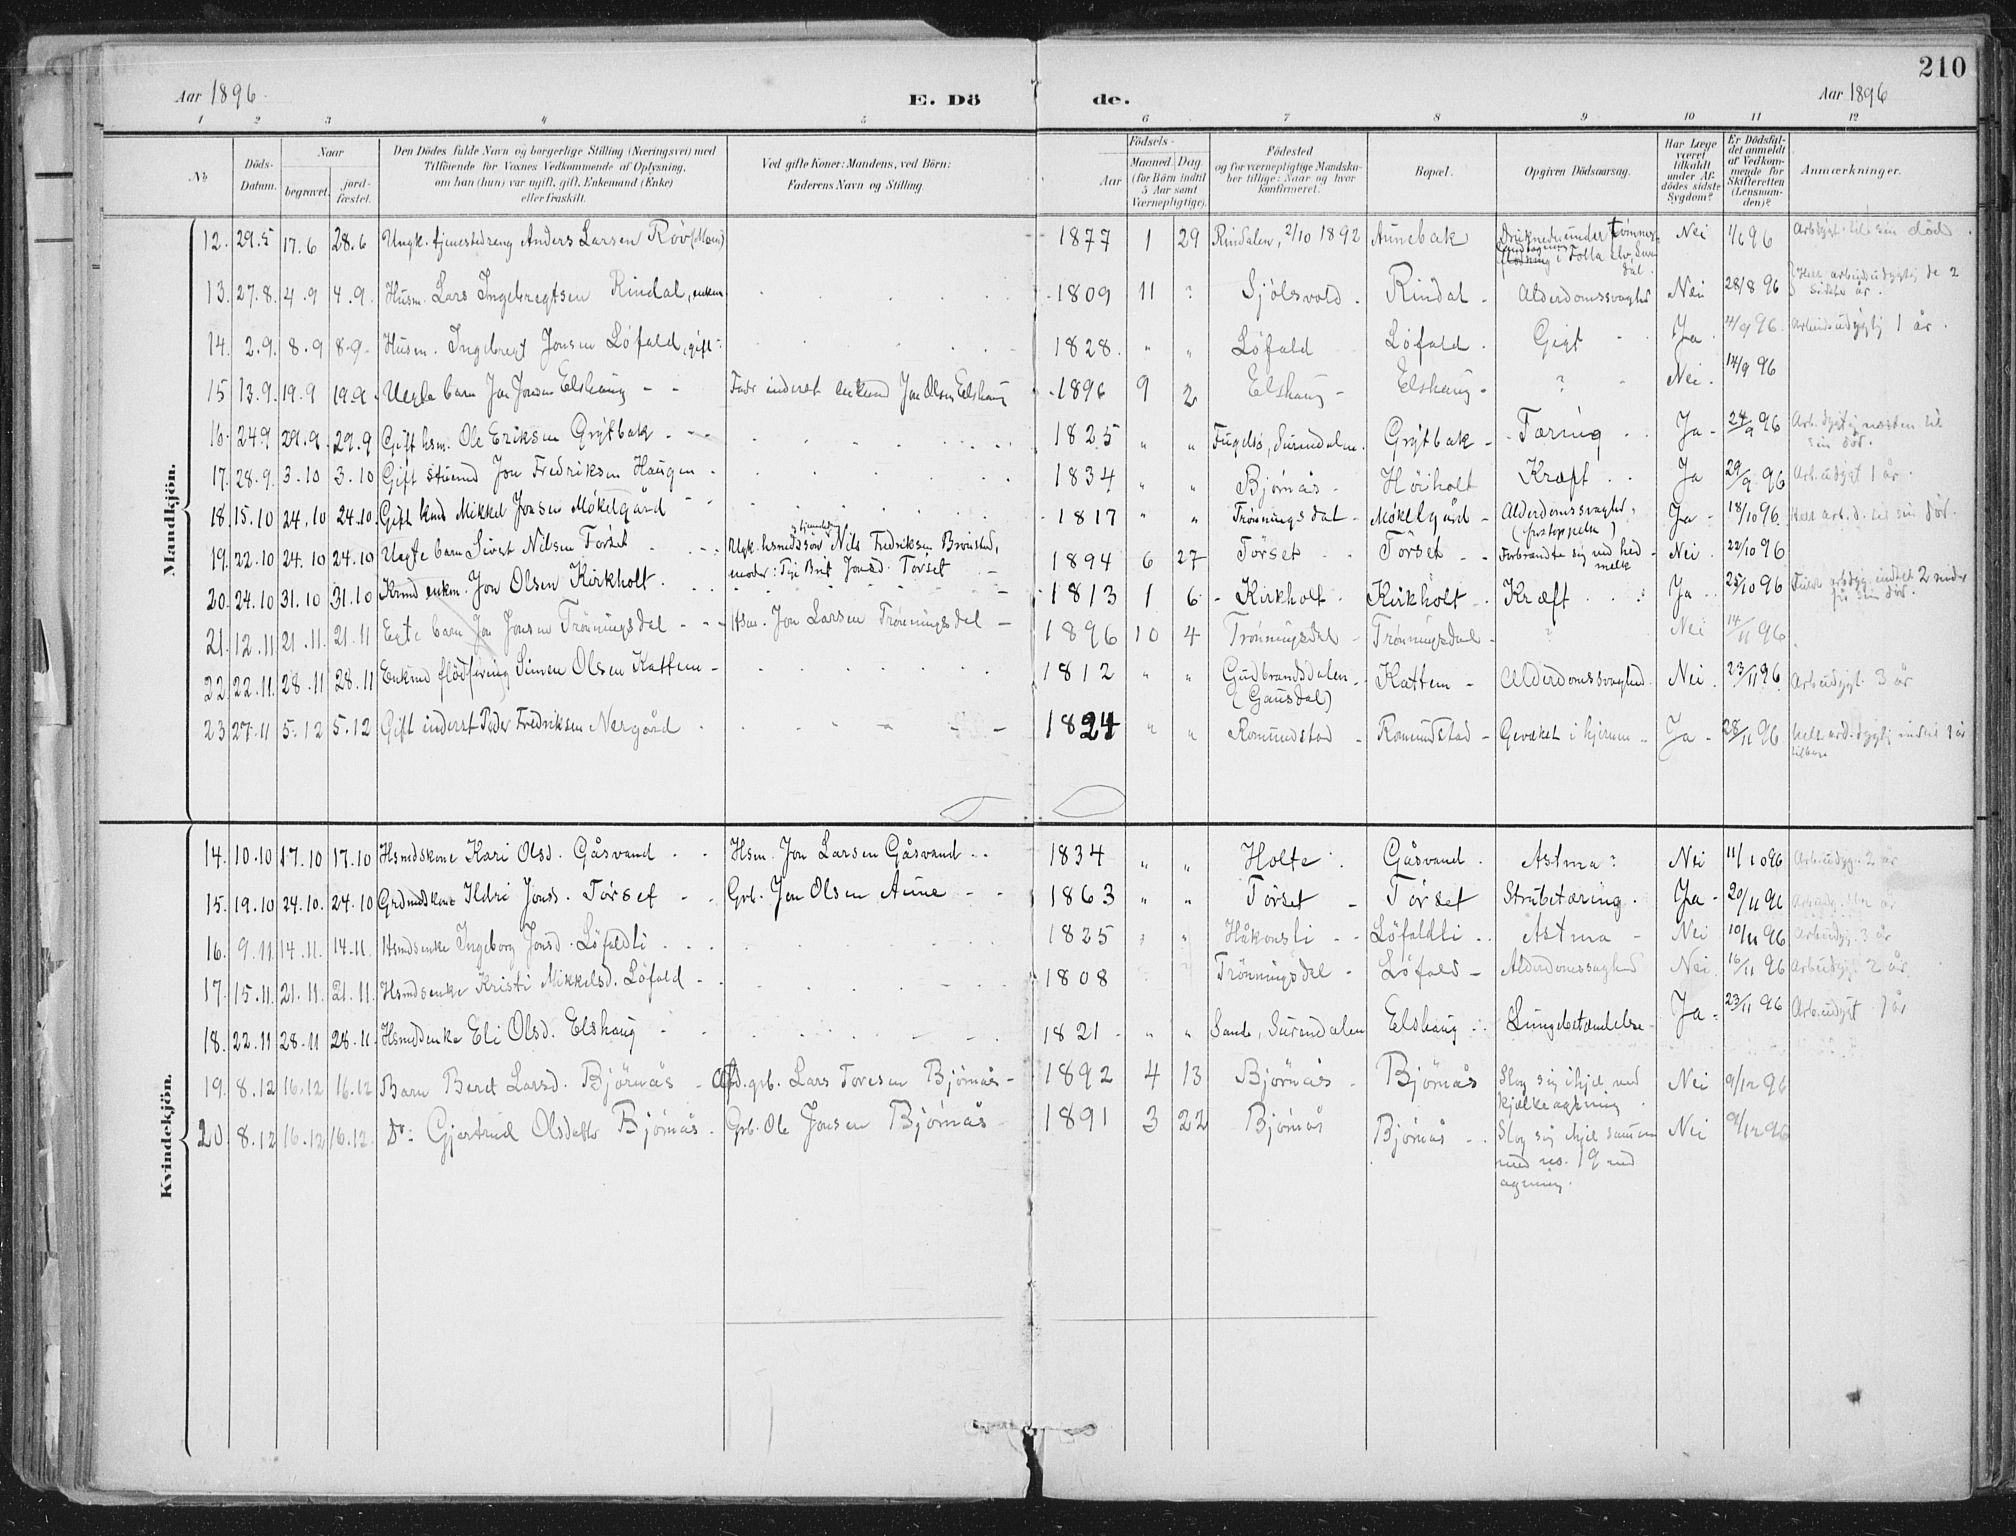 210
Aar 1896
E. Dö de.
Aar 1896
1 2 3 4 5 6 7 8 9 10 11 12
No
Döds-Datum.
Naar
begravet. jord-fæstet.
Den Dödes fulde Navn og borgerlige Stilling (Næringsvei) med
Tilföiende for Voxnes Vedkommende af Oplysning,
om han (hun) var ugift, gift, Enkemand (Enke)
eller fraskilt.
Ved gifte Koner: Mandens, ved Börn:
Faderens Navn og Stilling.
Födsels-
Aar
Maaned. Dag.
(for Börn indtil
5 Aar samt
Værnepligtige).
Födested
og for værnepligtige Mandska-
ber tillige: Naar og hvor
konfirmeret.
Bopæl.
Opgiven Dödsaarsag.
Har Læge
været
tilkaldt
under Af-
dödes sidste
Sygdom?
Er Dödsfal-
det anmeldt
af Vedkom-
mende for
Skifteretten
(Lensman-
den)?
Anmærkninger.
Mandkjön.
12. 29.5 17.6 28.6 Ungk. tjenestedreng Anders Larsen Röv (Moen) 1877 1 29 Rindalen, 2/10 1892 Aunebak under tömmer i Folla Elv, Nei 1/6 96 til sin död.
13. 27.8. 4.9 4.9. Husm. Lars Ingebregtsen Rindal, enkem 1809 11 ? Sjölsvold Rindal Alderdomssvaghed Nei 28/8 96 Helt arbeidsudygtig de 2 sidste år.
14. 2.9. 8.9 8.9. Husm. Ingebregt Jonsen Löfald, gift 1828. " " Löfald Löfald Gigt Ja 4/9 96. Arbeidsudygtig 1 år.
15 13.9. 19.9 19.9. Uegte barn Jon Jonsen Elshaug Fader inderst enkem Jon Olsen Elshaug 1896 9 2 Elshaug Elshaug ? Nei. 14/9 96
16. 24.9 29.9. 29.9 Gift hsm. Ole Eriksen Grÿtbak 1825 " " Fugelsö, Surendalen. Grÿtbak Tæring Ja 24/9 96 Arb.dygtig næsten til sin död.
17. 28.9. 3.10 3.10 Gift Jon Fredriksen Haugen 1834 " " Bjørnås Höiholt Kræft Ja 29/9 96 Arb.udygt 1 år.
18. 15.10 24.10 24.10. Gift Mikkel Jonsen Møkelgård 1817 " " Trønningsdal Møkelgård Alderdomssvaghed, Ja 18/10 96. Helt arb.d. til sin död.
19. 22.10 24.10 24.10 Uegte barn Sivert Nilsen Torset Ungk. Nils Fredriksen moder: Brit Jonsd. Torset 1894 6 27 Tørset Tørset Forbrændte sig ved hed melk Nei. 22/10 96
20. 24.10 31.10 31.10 enkem. Jon Olsen Kirkholt. 1813 1 6 Kirkholt Kirkholt Kræft Ja 25/10 96 indtil 2 för sin död.
21. 12.11 21.11. 21.11 Egte barn Jon Jonsen Trønningsdal Hsm. Jon Larsen Trønningsdel 1896 10 4 Trønningsdel Trønningsdal ? Nei 14/11 96
22. 22.11. 28.11 28.11 Enkemd Simen Olsen Kattem 1812 " " Gudbrandsdalen (Gausdal) Kattem Alderdomssvaghed Nei 23/11 96 Arb.udygt. 3 år
23 27.11 5.12 5.12 Gift inderst Peder Fredriksen Nergård 1824 " " Romundstad Romundstad i hjernen Ja 28/11 96 Helt 1 år
Kvindekjön.
14. 10.10 17.10 17.10 Hsmdskone Kari Olsd. Gåsvand Hsm. Jon Larsen Gåsvand 1834 " " Holte Gåsvand Astma Nei 11/10 96 Arb.udyg. 2 år
15. 19.10 24.10. 24.10 Grdmdskone Ildri Jonsd. Torset Grb. Jon Olsen Aune 1863 " " Tørset Tørset Strubetæring. Ja 20/11 96
16. 9.11 14.11. 14.11. Hsmdsenke Ingeborg Jonsd. Löfaldli 1825 " " Håkonsli Löfaldli Astma Nei 10/11 96 Arb.udyg. 3 år
17. 15.11. 21.11. 21.11. Hsmdsenke Kristi Mikkelsd. Löfald 1808 Trönningsdel Löfald Alderdomssvaghed Nei. 16/11 96 Arbeudygt. 2 år.
18. 22.11 28.11 28.11. Hsmdsenke Eli Olsd. Elshaug 1821 " " Sande, Surendalen Elshaug Lungebetændelse Ja 23/11 96 Arb.udygt 1 år
19. 8.12 16.12 16.12 Barn Beret Larsd. Bjørnås grb. Lars Toresen Bjørnås 1892 4 13 Bjørnås Bjørnås Slog sig ihjel ved kjælkeagening Nei 9/12 96
20. 8.12 16.12 16.12. Do: Gjertrud Olsdatter Bjørnås. Grb. Ole Jonsen Bjørnås 1891 3 22 Bjørnås Bjørnås Slog sig ihjel sammen med no. 19 ved agening. Nei 9/12 96